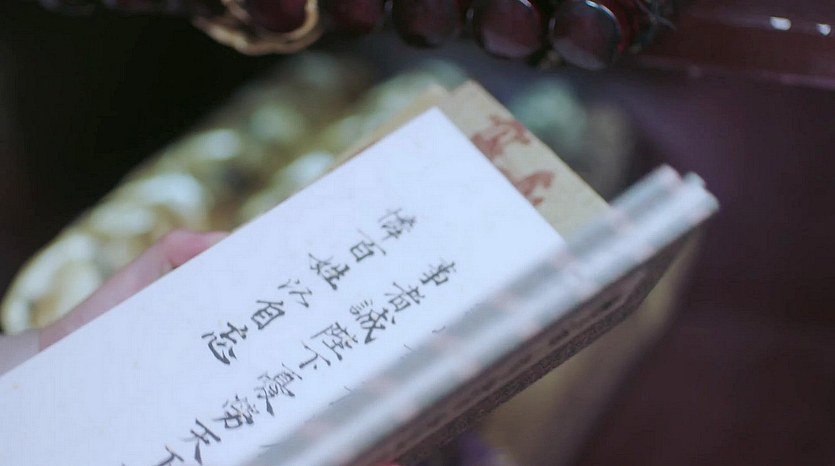 事者誠陛下憂勞天下
憐百姓以自忘